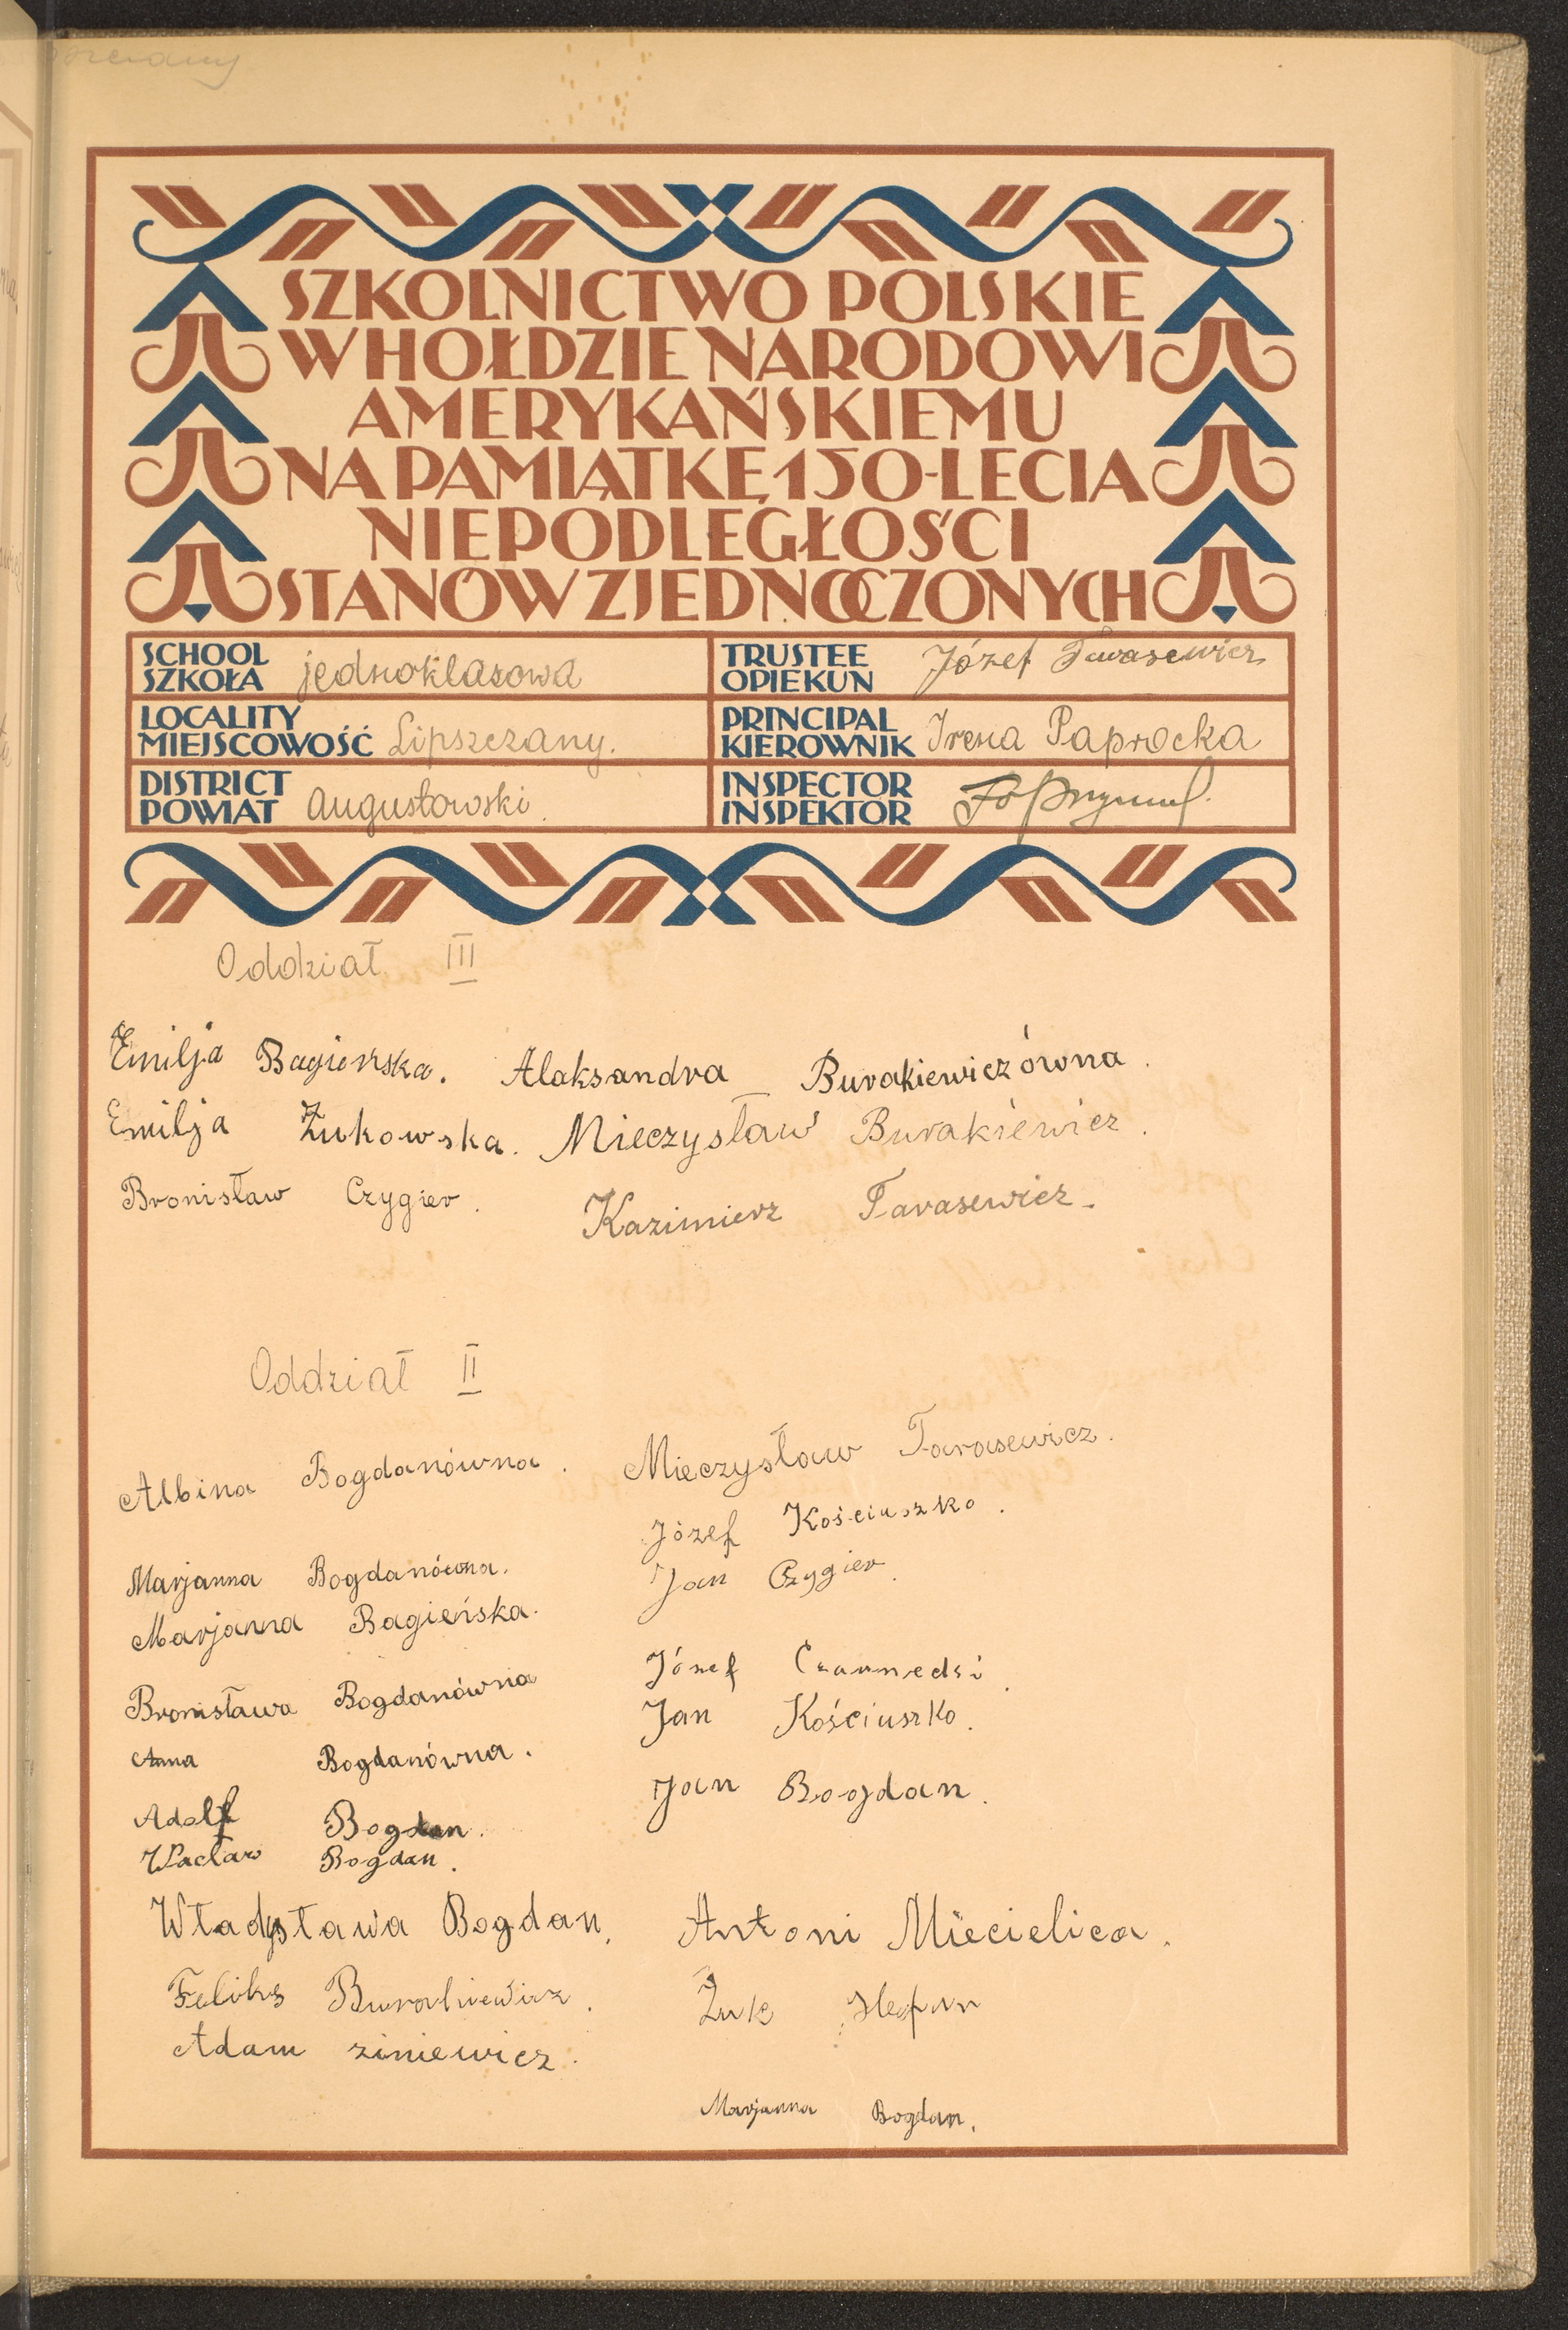 SZKOLNICTWO POLSKIE
W HOŁDZIE NARODOWI
AMERYKAŃSKIEMU
NA PAMIĄTKĘ 150-LECIA
NIEPODLEGŁOŚCI
STANÓW ZJEDNOCZONYCH
SCHOOL
SZKOŁA jednoklasowa
TRUSTEE
OPIEKUN Józef Tarasewicz
LOCALITY
MIEJSCOWOŚĆ Lipszczany.
PRINCIPAL
KIEROWNIK Irena Paprocka
DISTRICT
POWIAT Augustowski.
INSPECTOR
INSPEKTOR
Oddział III
Emilja Bagieńska. Alaksandra Burakiewiczówna.
Emilja Żukowska. Mieczysław Burakiewicz.
Bronisław Czygier. Kazimierz Tarasewicz.
Oddział II
Albina Bogdanówna. Mieczysław Tarasewicz.
Józef Kościuszko.
Marjanna Bogdanówna. Jan Czygier.
Marjanna Bagieńska.
Józef
Bronisława Bogdanówna Jan Kościuszko.
Anna Bogdanówna.
Jan Bogdan.
Adolf Bogdan.
Wacław Bogdan.
Władysława Bogdan. Antoni Miecielica.
Feliks Burakiewicz. Żuk Stefan
Adam ziniewicz.
Marjanna Bogdan.